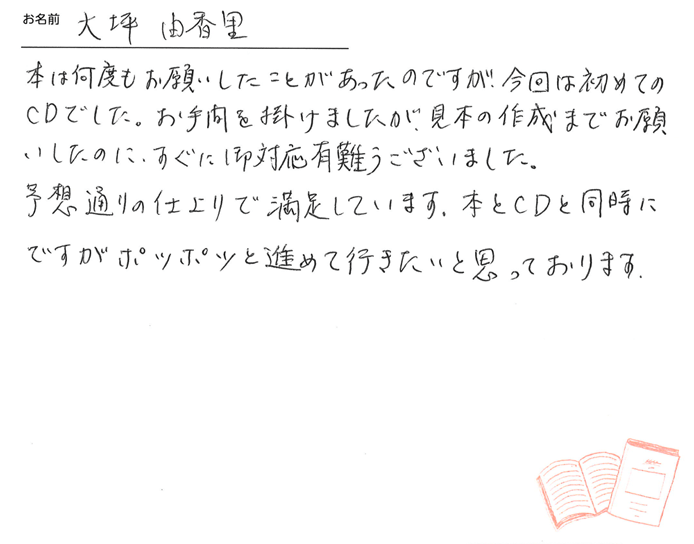 お名前 大坪 由香里
本は何度もお願いしたことがあったのですが、今回は初めての
CDでした。お手間を掛けましたが、見本の作成までお願
いしたのに、すぐに即対応有難うございました。
予想通りの仕上りで満足しています。本とCDと同時に
ですがポツポツと進めて行きたいと思っております。